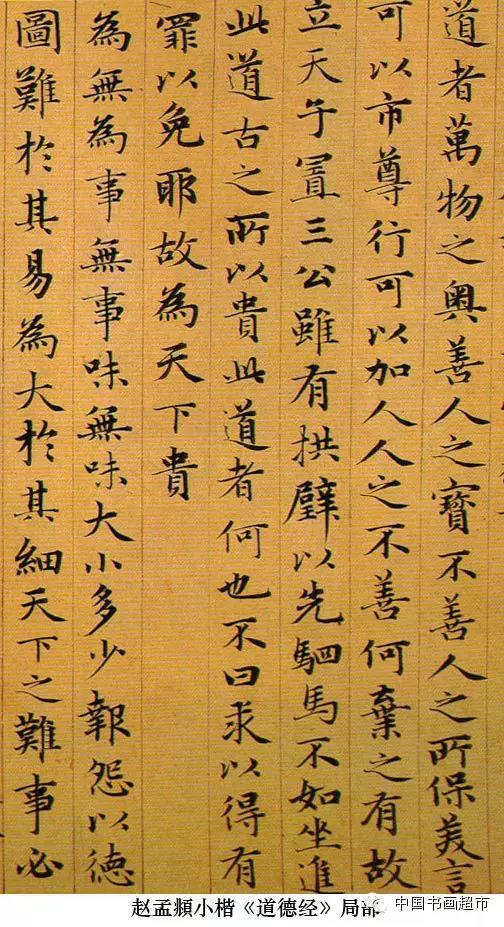 道者萬物之奧善人之寶不善人之所保美言
可以市尊行可以加人人之不善何棄之有故
立天子置三公雖有拱璧以先駟馬不如坐進
此道古之所以貴此道者何也不曰求以得有
罪以免耶故為天下貴
為無為事無事味無味大小多少報怨以德
圖難於其易為大於其細天下之難事必
赵孟頫小楷《道德经》局部
中国书画超市